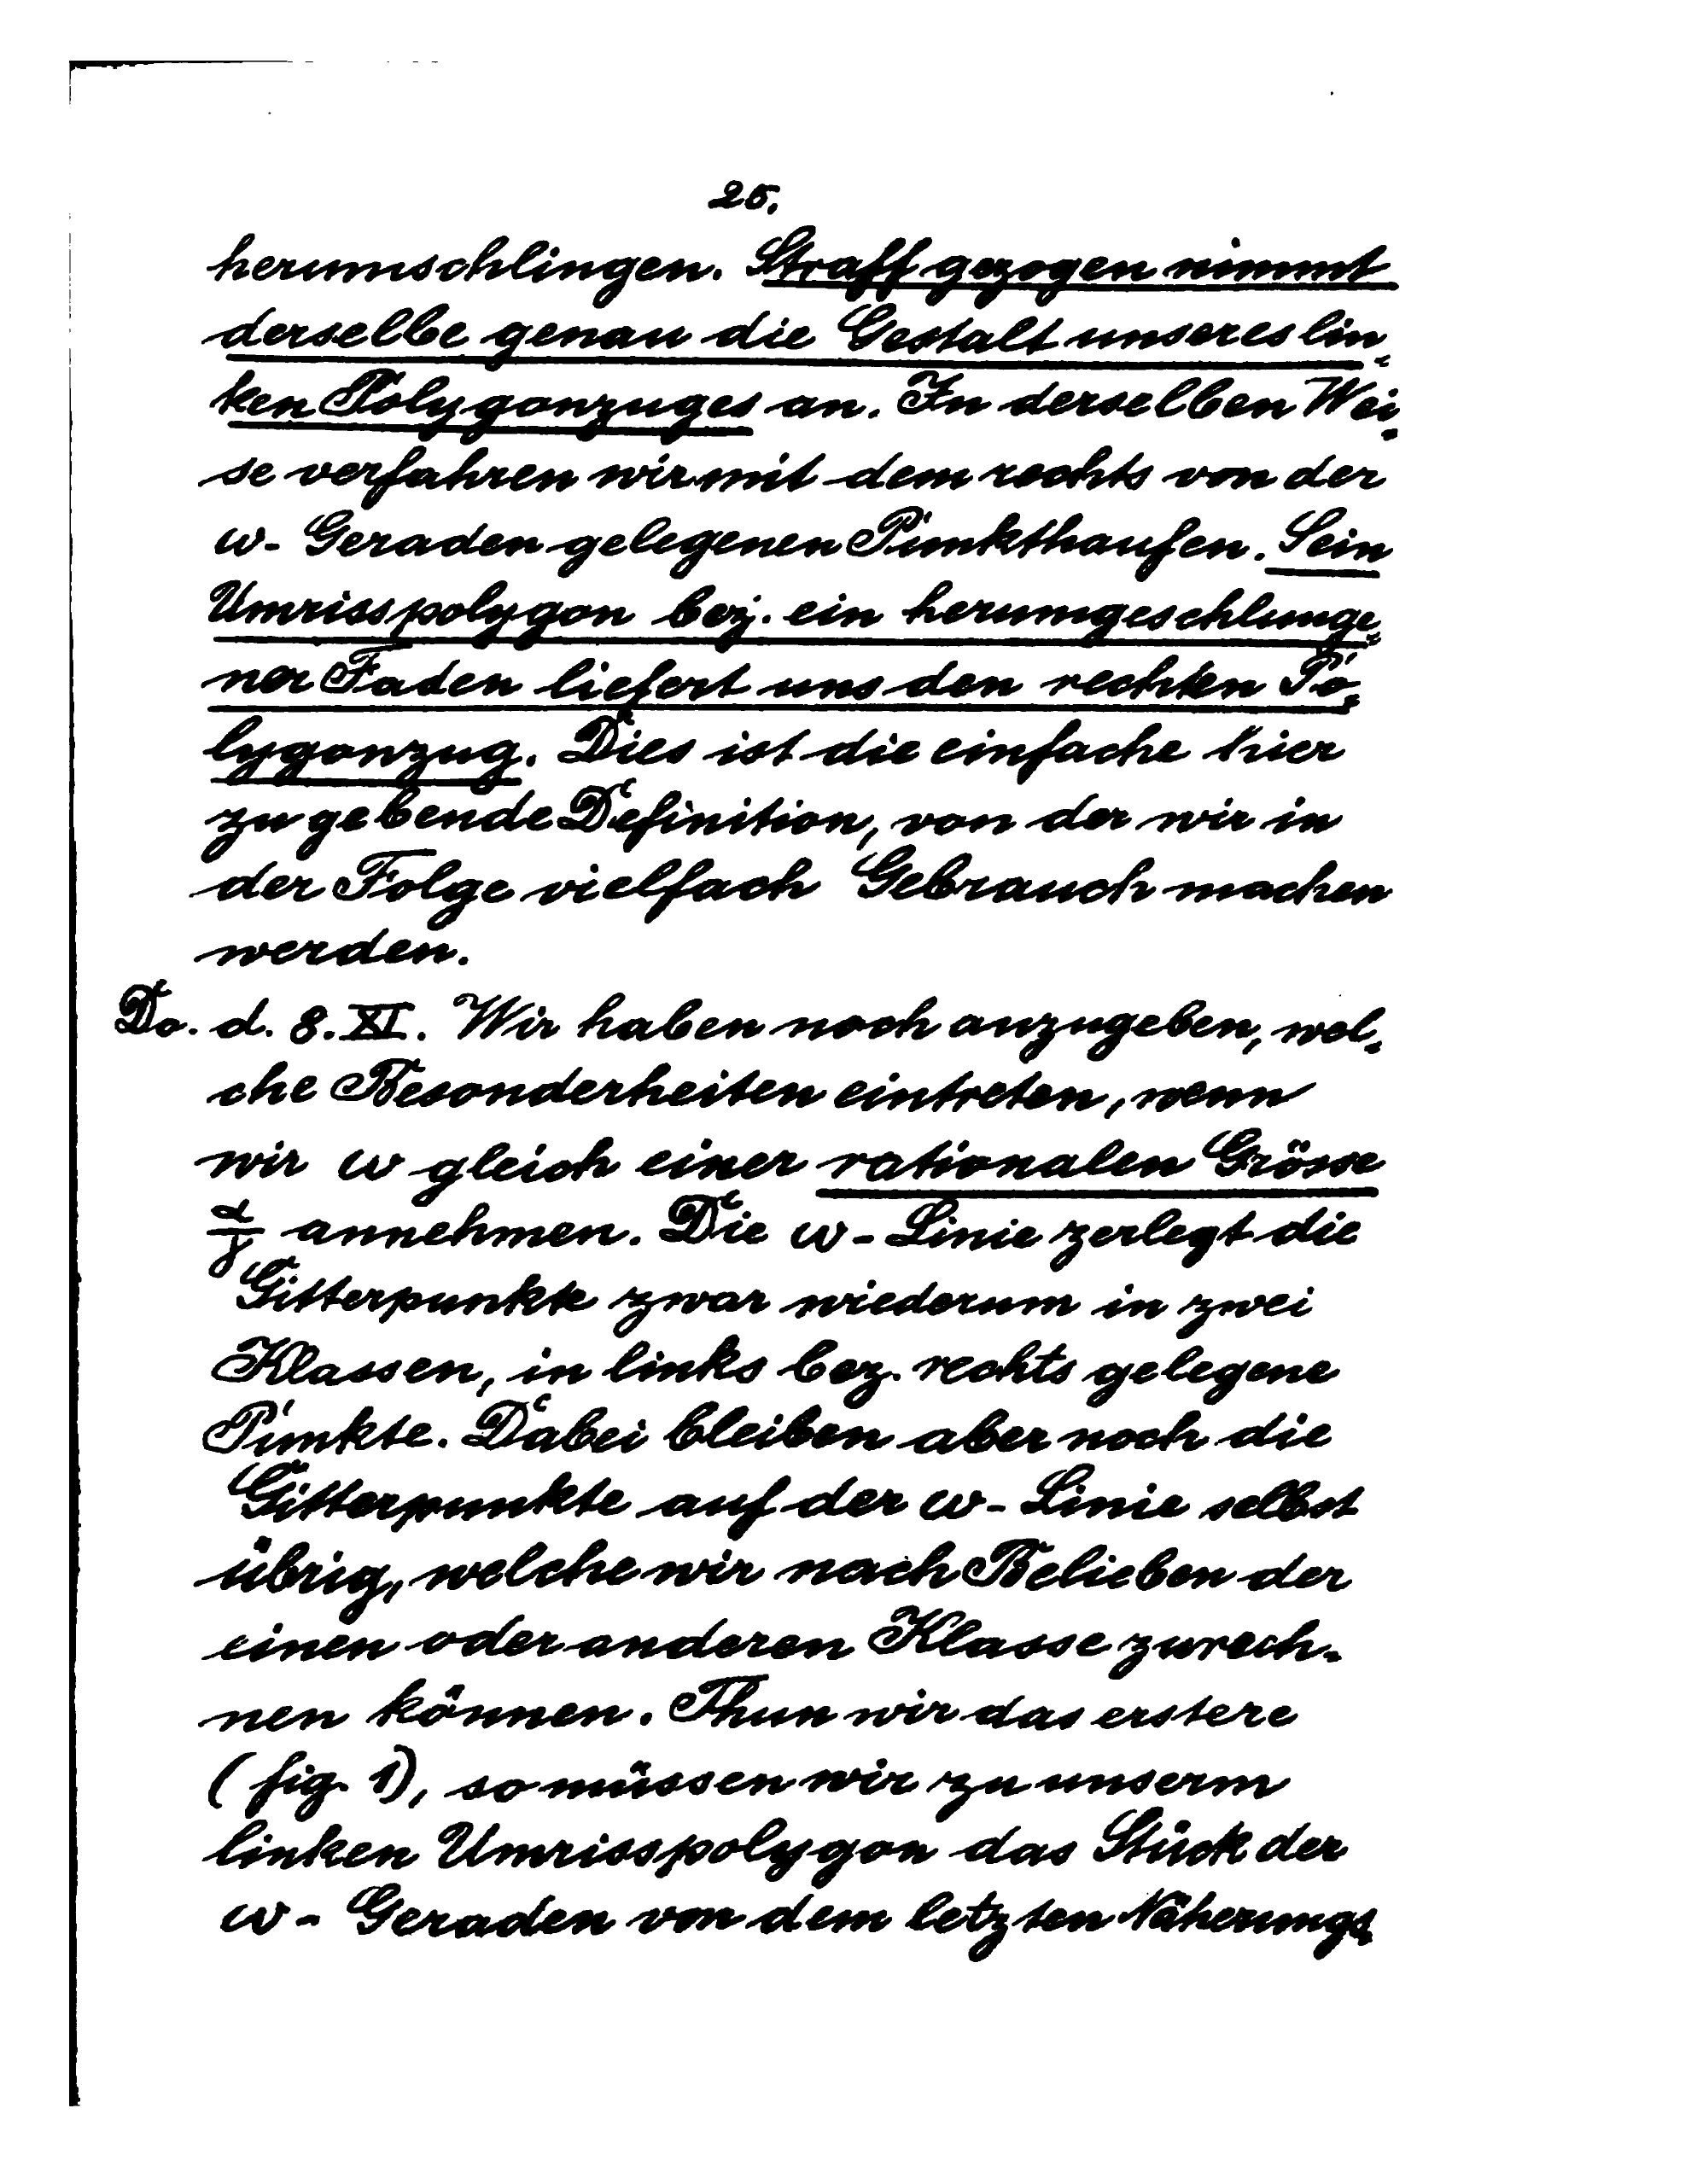 25.
herumschlingen. Straff gezogen nimmt
derselbe genau die Gestalt unseres lin-
ken Polygonzuges an. In derselben Wei-
se verfahren wir mit dem rechts von der
ω- Geraden gelegenen Punkthaufen. Sein
Umrisspolygon bez. ein herumgeschlunge-
ner Faden liefert uns den rechten Po-
lygonzug. Dies ist die einfache hier
zu gebende Definition, von der wir in
der Folge vielfach Gebrauch machen
werden.
Do. d. 8. XI. Wir haben noch anzugeben, wel-
che Besonderheiten eintreten, wenn
wir ω gleich einer rationalen Grösse
α/γ annehmen. Die ω- Linie zerlegt die
Gitterpunkte zwar wiederum in zwei
Klassen, in links bez. rechts gelegene
Punkte. Dabei bleiben aber noch die
Gitterpunkte auf der ω- Linie selbst
übrig, welche wir nach Belieben der
einen oder anderen Klasse zurech-
nen können. Thun wir das erstere
(fig. 1), so müssen wir zu unserm
linken Umrisspolygon das Stück der
ω- Geraden von dem letzten Näherungs-